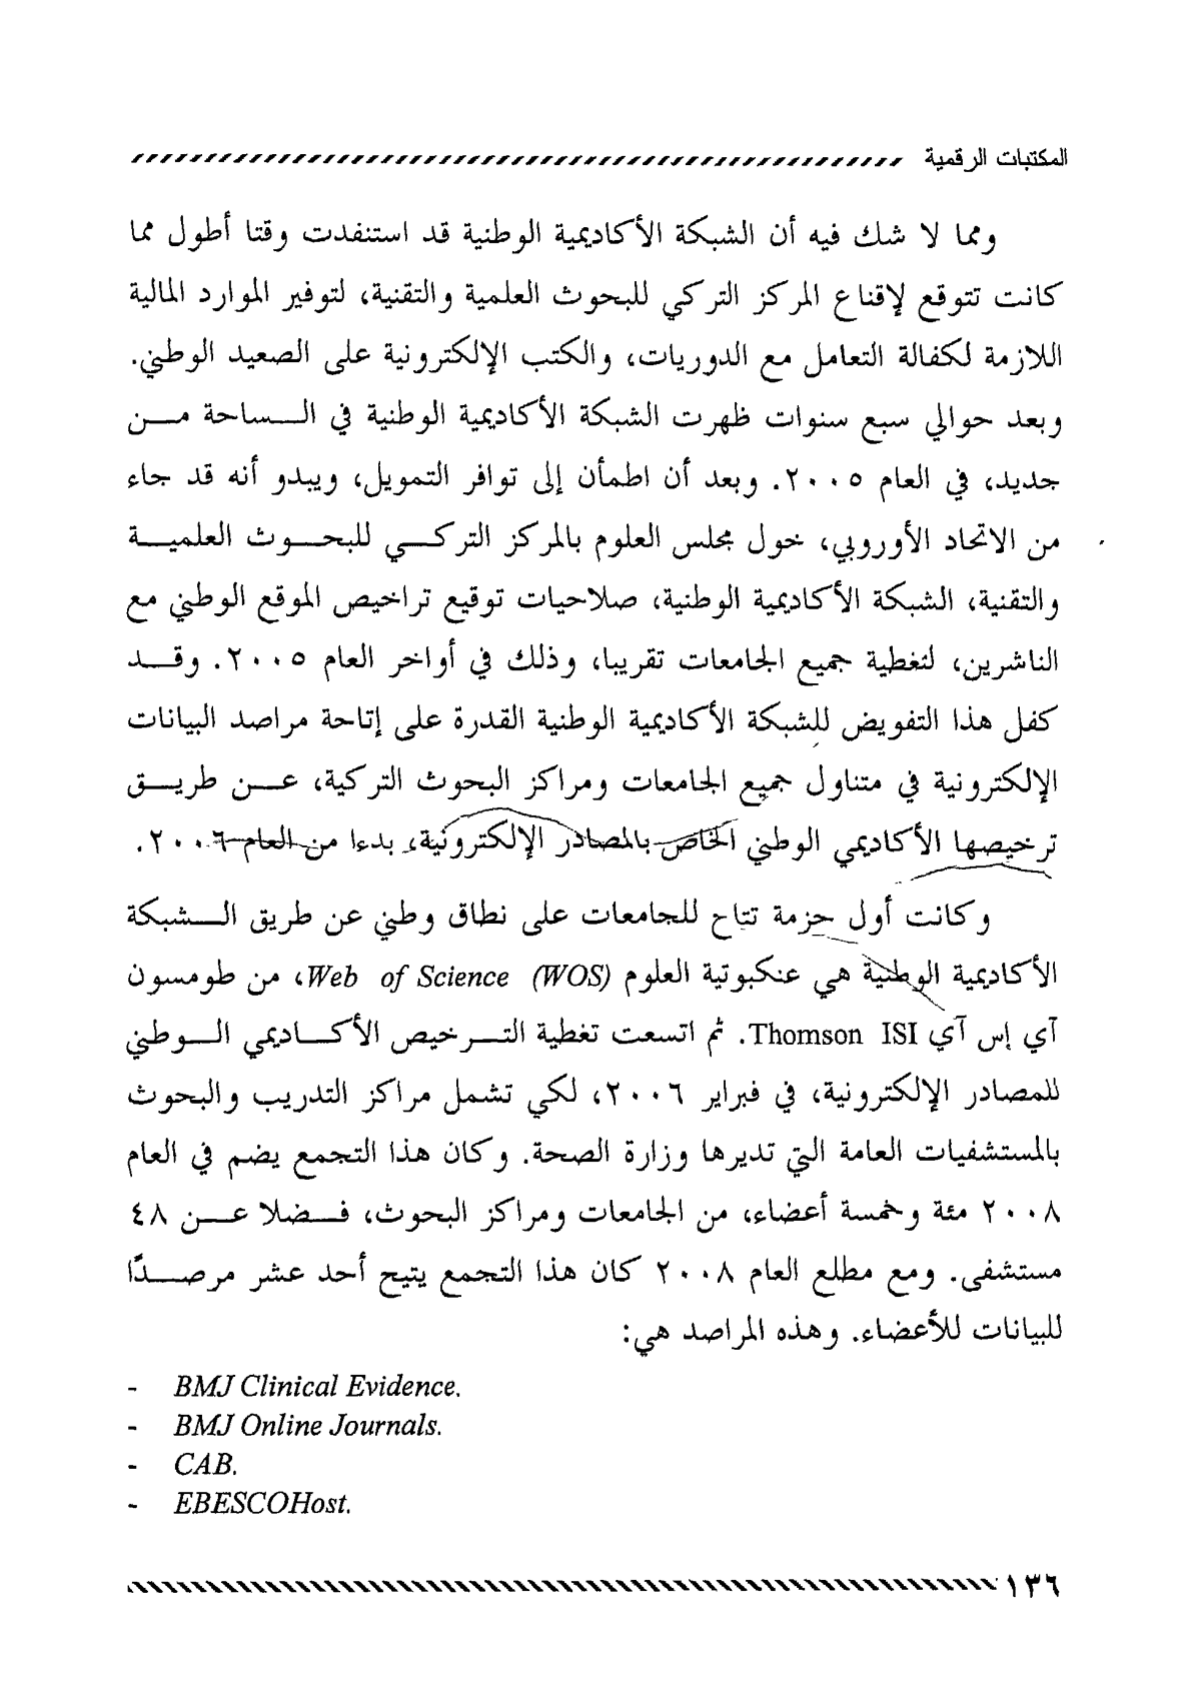 المكتبات الرقمية
ومما لا شك فيه أن الشبكة الأكاديمية الوطنية قد استنفدت وقتا أطول مما
كانت تتوقع لإقناع المركز التركي للبحوث العلمية والتقنية، لتوفير الموارد المالية
اللازمة لكفالة التعامل مع الدوريات، والكتب الإلكترونية على الصعيد الوطني.
وبعد حوالي سبع سنوات ظهرت الشبكة الأكاديمية الوطنية في الساحة من
جديد، في العام ٢٠٠٥. وبعد أن اطمأن إلى توافر التمويل، ويبدو أنه قد جاء
من الاتحاد الأوروبي، خول مجلس العلوم بالمركز التركي للبحوث العلمية
والتقنية، الشبكة الأكاديمية الوطنية، صلاحيات توقيع تراخيص الموقع الوطني مع
الناشرين، لتغطية جميع الجامعات تقريبا، وذلك في أواخر العام ٢٠٠٥. وقد
كفل هذا التفويض للشبكة الأكاديمية الوطنية القدرة على إتاحة مراصد البيانات
الإلكترونية في متناول جميع الجامعات ومراكز البحوث التركية، عن طريق
ترخيصها الأكاديمي الوطني الخاص بالمصادر الإلكترونية، بدءا من العام ٢٠٠٦.
وكانت أول حزمة تتاح للجامعات على نطاق وطني عن طريق الشبكة
الأكاديمية الوطنية هي عنكبوتية العلوم Web of Science (WOS)، من طومسون
آي إس آي Thomson ISI. ثم اتسعت تغطية الترخيص الأكاديمي الوطني
للمصادر الإلكترونية، في فبراير ٢٠٠٦، لكي تشمل مراكز التدريب والبحوث
بالمستشفيات العامة التي تديرها وزارة الصحة. وكان هذا التجمع يضم في العام
٢٠٠٨ مئة وخمسة أعضاء، من الجامعات ومراكز البحوث، فضلا عن ٤٨
مستشفى. ومع مطلع العام ٢٠٠٨ كان هذا التجمع يتيح أحد عشر مرصدًا
للبيانات للأعضاء. وهذه المراصد هي:
- BMJ Clinical Evidence.
- BMJ Online Journals.
- CAB.
- EBESCOHost.
١٣٦